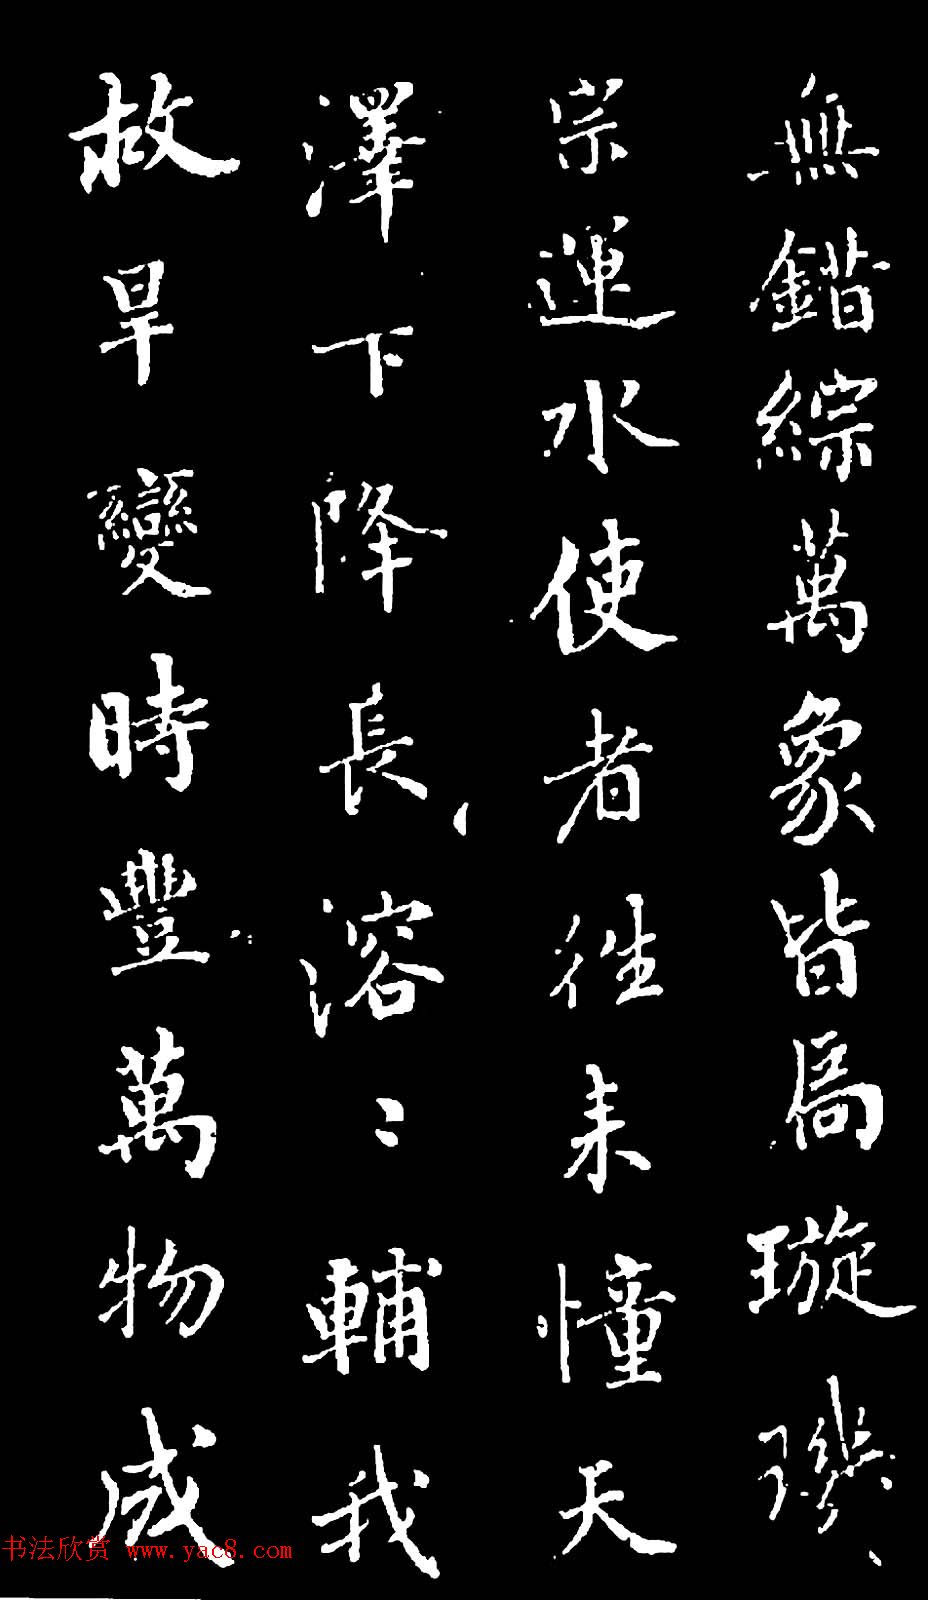 無錯綜萬象皆為璇璣
宗運水使者往来憧天
澤下降長溶〻輔我
救旱變時豐萬物咸
书法欣赏 www.yac8.com